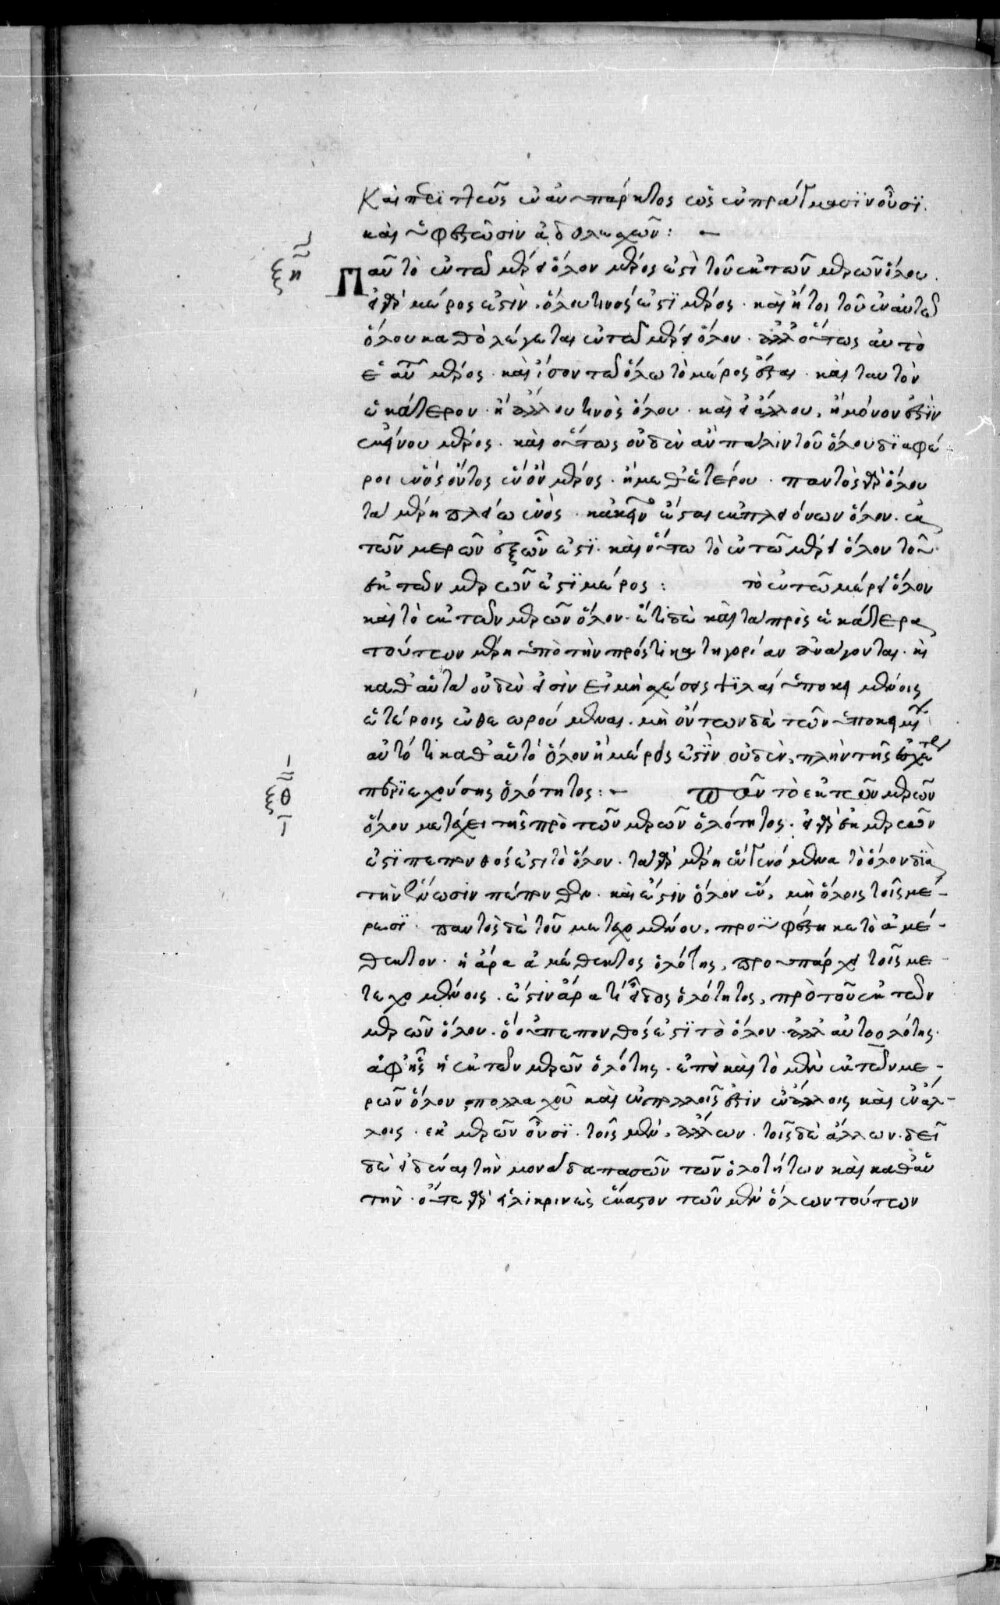 καὶ περιττῶς ἐν ἀνυπάρκτοις ὡς ἐν πράγμασι νοῦσι.
καὶ ὑφεστῶσιν ἀδολεσχῶν :
ξη
Πᾶν τὸ ἐν τῷ μέρει ὅλον μέρος ἐστὶ τοῦ ἐκ τῶν μερῶν ὅλου.
εἰ γὰρ μέρος ἐστὶν. ὅλου τινός ἐστι μέρος. καὶ ἤτοι τοῦ ἐν αὐτῷ
ὅλου καθὸ λέγεται ἐν τῷ μέρει ὅλον. ἀλλ' οὕτως αὐτὸ
ἑαυτοῦ μέρος. καὶ ἴσον τῷ ὅλῳ τὸ μέρος ἔσται. καὶ ταυτὸν
ἑκάτερον. ἢ ἄλλου τινὸς ὅλου. καὶ εἰ ἄλλου, ἢ μόνον ἐστὶν
ἐκείνου μέρος. καὶ οὕτως οὐδὲν ἂν πάλιν τοῦ ὅλου διαφέ-
ροι ἑνὸς ὄντος ἓν ὂν μέρος. ἢ μεθ' ἑτέρου. παντὸς γὰρ ὅλου
τὰ μέρη πλείω ἑνὸς. κἀκεῖνο ἔσται ἐκ πλειόνων ὅλον. ἐκ
τῶν μερῶν ἐξ ὧν ἐστι. καὶ οὕτω τὸ ἐν τῷ μέρει ὅλον τοῦ
ἐκ τῶν μερῶν ἐστι μέρος : τὸ ἐν τῷ μέρει ὅλον
καὶ τὸ ἐκ τῶν μερῶν ὅλον. ἔτι δὲ καὶ τὰ πρὸς ἑκάτερα
τούτων μέρη ὑπὸ τὴν πρός τι κατηγορίαν ἀνάγονται.
καθ' αὑτὰ οὐδέν εἰσιν εἰ μὴ σχέσεις ψιλαί ὑποκειμένοις
ἑτέροις ἐνθεωρούμεναι. μὴ ὄντων δὲ τῶν ὑποκειμένων
αὐτό τι καθ' αὑτὸ ὅλον ἢ μέρος ἐστὶν οὐδὲν, πλὴν τῆς
περιεχούσης ὁλότητος :
ξθ
Πᾶν τὸ ἐκ τῶν μερῶν
ὅλον μετέχει τῆς πρὸ τῶν μερῶν ὁλότητος. εἰ γὰρ ἐκ μερῶν
ἐστι πεπονθός ἐστι τὸ ὅλον. τὰ γὰρ μέρη ἓν γενόμενα τὸ ὅλον διὰ
τὴν ἕνωσιν πέπονθε. καὶ ἔστιν ὅλον ἐν, μὴ ὅλοις τοῖς μέ-
ρεσι. παντὸς δὲ τοῦ μετεχομένου, προϋφέστηκε τὸ ἀμέ-
θεκτον. ἡ ἄρα ἀμέθεκτος ὁλότης, προυπάρχει τοῖς με-
τεχομένοις. ἔστιν ἄρα τι εἶδος ὁλότητος, πρὸ τοῦ ἐκ τῶν
μερῶν ὅλου. ὃ οὐ πεπονθός ἐστι τὸ ὅλον. ἀλλ' αὐτοολότης.
ἀφ' ἧς ἡ ἐκ τῶν μερῶν ὁλότης. ἐπεὶ καὶ τὸ μὲν ἐκ τῶν με-
ρῶν ὅλον πολλαχοῦ καὶ ἐν πολλοῖς ἐστιν ἐν ἄλλοις καὶ ἐν ἄλ-
λοις. ἐκ μερῶν οὖσι. τοῖς μὲν, ἄλλων. τοῖς δὲ ἄλλων. δεῖ
δὲ εἶναι τὴν μονάδα πασῶν τῶν ὁλοτήτων καὶ καθ' αὑ-
τὴν. οὔτε γὰρ εἰλικρινὲς ἕκαστον τῶν μὲν ὅλων τούτων